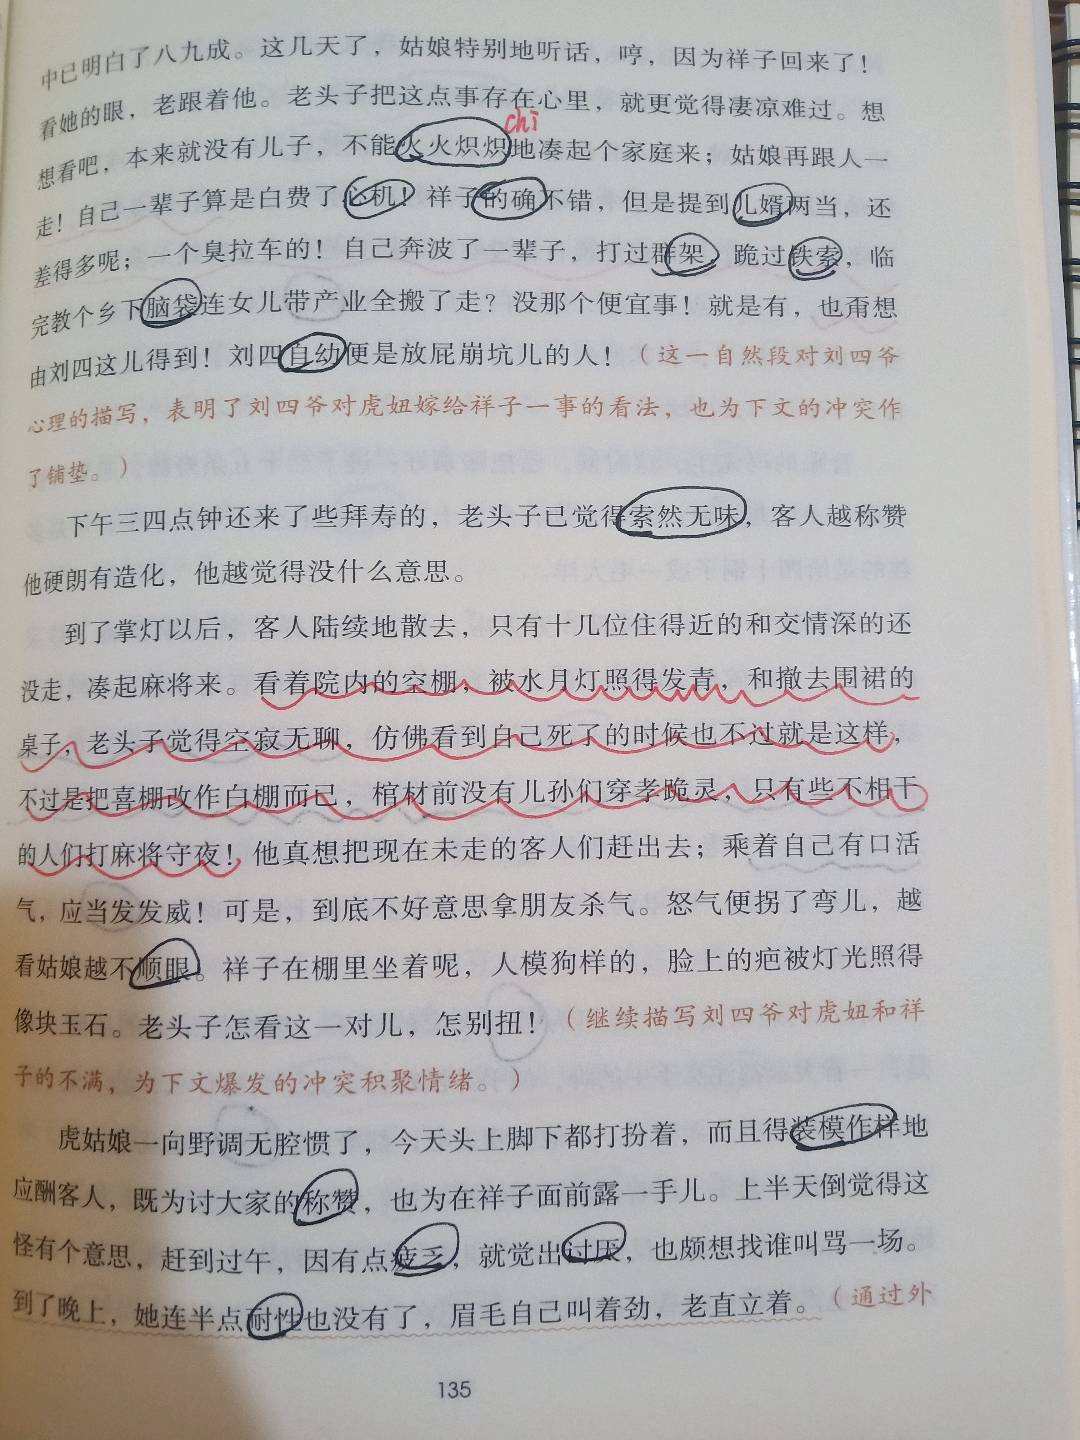 中已明白了八九成。这几天了，姑娘特别地听话，哼，因为祥子回来了！
看她的眼，老跟着他。老头子把这点事存在心里，就更觉得凄凉难过。想
chì
想看吧，本来就没有儿子，不能火火炽炽地凑起个家庭来；姑娘再跟人一
走！自己一辈子算是白费了心机！祥子的确不错，但是提到儿婿两当，还
差得多呢；一个臭拉车的！自己奔波了一辈子，打过群架，跪过铁索，临
完教个乡下脑袋连女儿带产业全搬了走？没那个便宜事！就是有，也甭想
由刘四这儿得到！刘四自幼便是放屁崩坑儿的人！（这一自然段对刘四爷
心理的描写，表明了刘四爷对虎妞嫁给祥子一事的看法，也为下文的冲突作
了铺垫。）
下午三四点钟还来了些拜寿的，老头子已觉得索然无味，客人越称赞
他硬朗有造化，他越觉得没什么意思。
到了掌灯以后，客人陆续地散去，只有十几位住得近的和交情深的还
没走，凑起麻将来。看着院内的空棚，被水月灯照得发青，和撤去围裙的
桌子，老头子觉得空寂无聊，仿佛看到自己死了的时候也不过就是这样，
不过是把喜棚改作白棚而已，棺材前没有儿孙们穿孝跪灵，只有些不相干
的人们打麻将守夜！他真想把现在未走的客人们赶出去；乘着自己有口活
气，应当发发威！可是，到底不好意思拿朋友杀气。怒气便拐了弯儿，越
看姑娘越不顺眼。祥子在棚里坐着呢，人模狗样的，脸上的疤被灯光照得
像块玉石。老头子怎看这一对儿，怎别扭！（继续描写刘四爷对虎妞和祥
子的不满，为下文爆发的冲突积聚情绪。）
虎姑娘一向野调无腔惯了，今天头上脚下都打扮着，而且得装模作样地
应酬客人，既为讨大家的称赞，也为在祥子面前露一手儿。上半天倒觉得这
怪有个意思，赶到过午，因有点疲乏，就觉出讨厌，也颇想找谁叫骂一场。
到了晚上，她连半点耐性也没有了，眉毛自己叫着劲，老直立着。（通过外
135